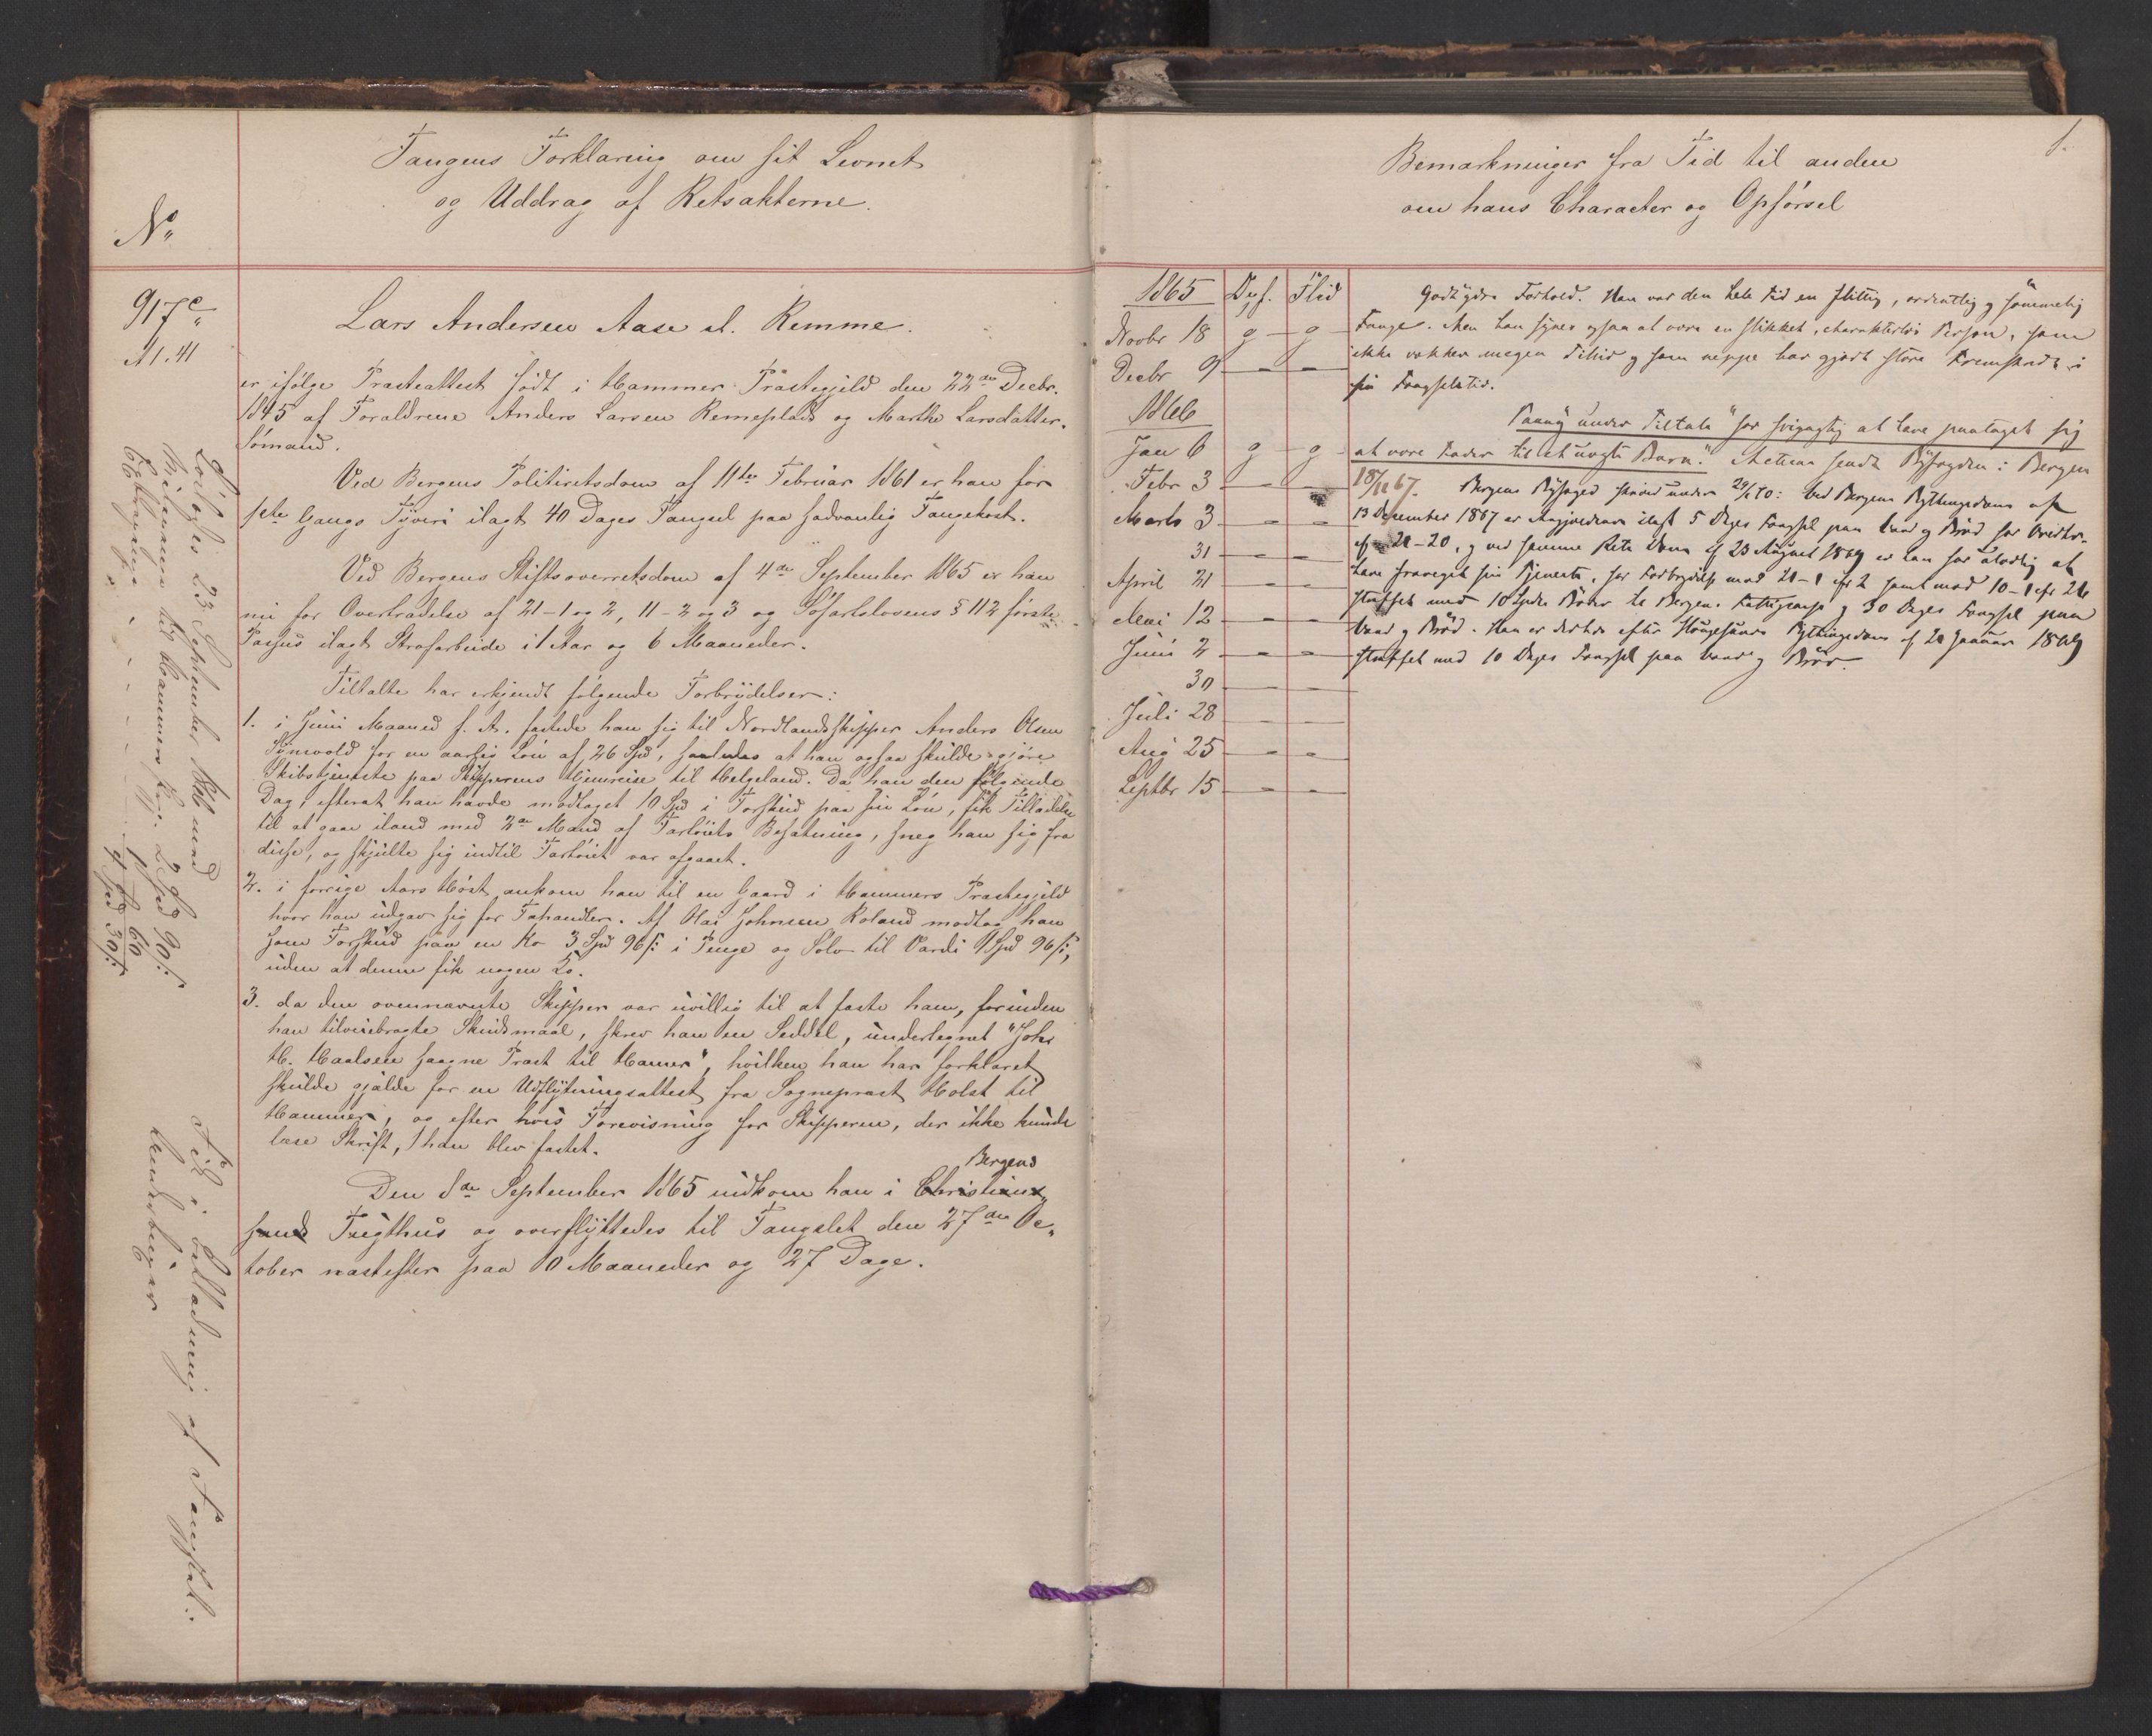 Fangens Forklaring om sit Levnet
og Uddrag af Retsakterne.
No
917c
A1.41
Lars Andersen Aase el. Remme.
er ifølge Præsteattest født i Hammer Præstegjeld den 22de Decbr.
1845 af Forældrene Anders Larsen Remeplads og Marthe Larsdatter.
Sømand.
Ved Bergens Politiretsdom af 11te Februar 1861 er han for
1ste Gangs Tyveri ilagt 40 Dages Fængsel paa sædvanlig Fangekost.
Ved Bergens Stiftsoverretsdom af 4de September 1865 er han
nu for Overtrædelse af 21-1 og 2, 11-2 og 3 og Søfartslovens § 112 første
Passus ilagt Strafarbeide i 1 Aar og 6 Maaneder.
Tiltalte har erkjendt følgende Forbrydelser:
1. i Juni Maaned f. A. fæstede han sig til Nordlandsskipper Anders Olsen
for en aarlig Løn af 26 Spd, saaledes at han ogsaa skulde gjøre
Skibstjeneste paa Skipperens Hjemreise til Helgeland. Da han den følgende
Dag, efterat han havde modtaget 10 Spd i Forskud paa sin Løn, fik Tilladelse
til at gaae iland med 2de Mand af Fartøiets Besætning, sneg han sig fra
disse, og skjulte sig indtil Fartøiet var afgaaet.
2. i forrige Aars Høst ankom han til en Gaard i Hammers Præstegjeld
hvor han udgav sig for Fæhandler. Af Olai Johnsen Roland modtog han
som Forskud paa en Ko 3 Spd 96 s: i Penge og Sølv til Værdi 1 Spd 96 s:,
uden at denne fik nogen Ko.
3. da den ovennævnte Skipper var uvillig til at fæste ham, forinden
han tilveiebragte Skudsmaal, skrev han en Seddel, undertegnet "Johs
H. Haalsen saagne Præst til Hamer", hvilken han har forklaret
skulde gjælde for en Udflytningsattest fra Sogneprest Holst til
Hammer, og efter hvis Forevisning for Skipperen, der ikke kunde
læse Skrift, han blev fæstet.
Bergens
Den 8de September 1865 indkom han i Christian-
sands Tugthus og overflyttedes til Fængslet den 27de Oc-
tober næstefter paa 10 Maaneder og 27 Dage.
Løslodes 23 September 1866 med
Reisepenge til Hammers Prgj. 2 Spd 90 s:
60
Spd 30 s:
Fik i Beklædning af Fængslet:
Bemærkninger fra Tid til anden
om hans Character og Opførsel
1.
1865 Opf. Flid
Novbr 18 g g
Decbr 9 - -
1866
Jan 6 g g
Febr 3 - -
Marts 3 - -
31 - -
April 21 - -
Mai 12 - -
Juni 2 - -
30 - -
Juli 28 - -
Aug 25 - -
Septbr 15 - -
Godt ydre Forhold. Han var den hele Tid en flittig, ordentlig og sømmelig
Fange. Men han synes ogsaa at være en slikket, charakterløs Person, som
ikke vækker megen Tillid og som neppe har gjort store Fremskridt i
sin Fængselstid.
Paany under Tiltale "for svigagtig at have paataget sig
at være Fader til et uægte Barn." Acterne sendt Byfogden i Bergen
18/11 67. Bergens Byfoged skriver under 29/1 70: Ved Bergens Bythingsdom af
13 December 1867 er Angjældende ilagt 5 Dages Fængsel paa Vand og Brød for Overtr.
af 21-20, og ved samme Rets Dom af 23 August 1869 er han for ulovlig at
have fraveget sin Tjeneste, for Forbrydelse mod 21-1 cfr 2 samt mod 10-1 cfr 26
straffet med 10 Spdrs Bøder til Bergens Fattigcasse og 30 Dages Fængsel paa
Vand og Brød. Han er derhos efter Haugesunds Bythingsdom af 20 Januar 1869
straffet med 10 Dages Fængsel paa Vand og Brød.